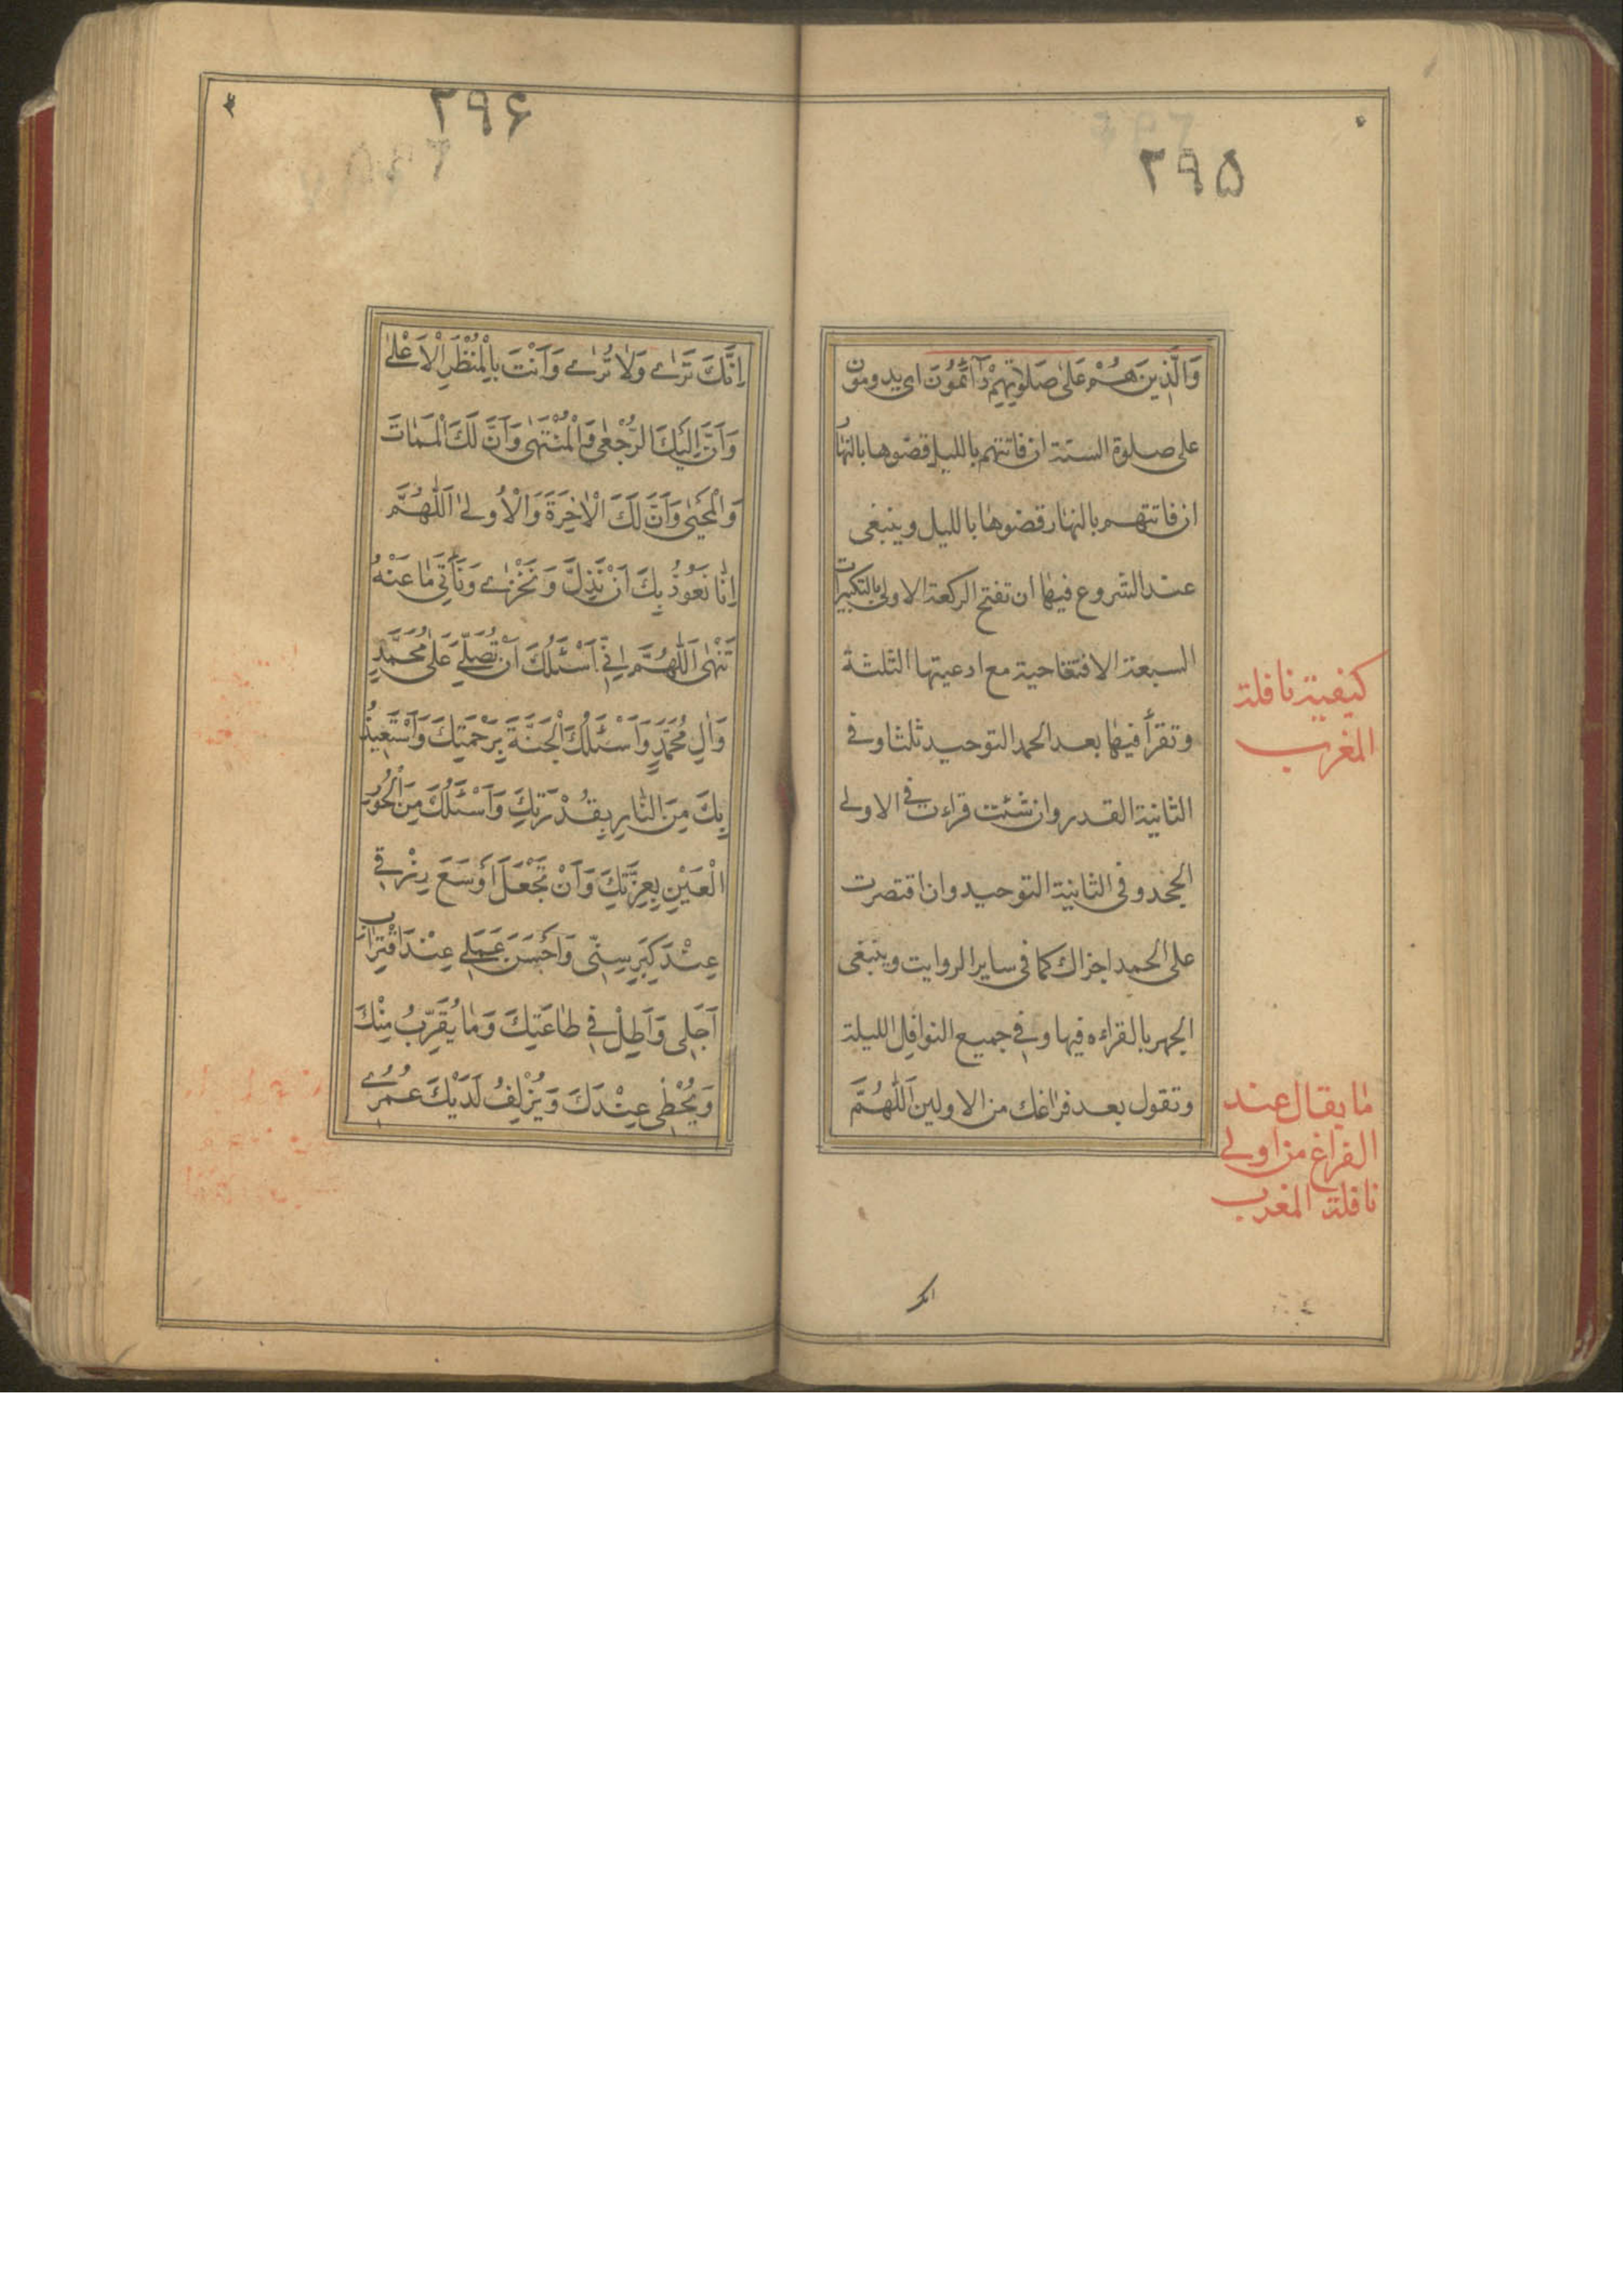 ۲۹۵
وَالَّذِينَ هُمْ عَلىٰ صَلوٰتِهِمْ دٰآئمُونَ اى يدومون
على صلوة السنة ان فاتتهم بالليل قضوها بالنهار
ان فاتتهم بالنهار قضوها بالليل وينبغى
عند الشروع فيها ان تفتح الركعة الاولى بالتكبيرات
السبعة الافتتاحية مع ادعيتها الثلثة
وتقرأ فيها بعد الحمد التوحيد ثلثا وفى
الثانية القدر وان شئت قراءت فى الاولى
الجحد وفى الثانية التوحيد وان اقتصرت
على الحمد اجزاك كما فى ساير الروايت وينبغى
الجهر بالقراءه فيها وفى جميع النوافل الليلة
وتقول بعد فراغك من الاولين اَللّٰهُمَّ
كيفية نافلة
المغرب
ما يقال عند
الفراغ من اولى
نافلة المغرب
انك
۲۹۶
اِنَّكَ تَرىٰ وَلاٰ تُرىٰ وَاَنْتَ بِالْمُنْظَرِ الْاَعْلىٰ
وَاَنَّ اِلَيْكَ الرُّجْعٰى وَالْمُنْتَهٰى وَاَنَّ لَكَ الْمَمٰاتَ
وَالْمَحْيٰى وَاَنَّ لَكَ الْاٰخِرَةَ وَالْاُولىٰ اَللّٰهُمَّ
اِنّٰا نَعُوذُ بِكَ اَنْ نَذِلَّ وَنَخْزىٰ وَنَأْتِىَ مٰا عَنْهُ
تَنْهٰى اَللّٰهُمَّ اِنّى اَسْئَلُكَ اَنْ تُصَلِّىَ عَلىٰ مُحَمَّدٍ
وَاٰلِ مُحَمَّدٍ وَاَسْئَلُكَ الْجَنَّةَ بِرَحْمَتِكَ وَاَسْتَعِيذُ
بِكَ مِنَ النّٰارِ بِقُدْرَتِكَ وَاَسْئَلُكَ مِنَ الْحُورِ
الْعَيْنِ بِعِزَّتِكَ وَاَنْ تَجْعَلَ اَوْسَعَ رِزْقى
عِنْدَ كِبَرِ سِنّى وَاَحْسَنَ عَمَلى عِنْدَ اقْتِرٰابِ
اَجَلى وَاَطِلْ فى طٰاعَتِكَ وَمٰا يُقَرِّبُ مِنْكَ
وَيُحْظٖى عِنْدَكَ وَيُزْلِفُ لَدَيْكَ عُمُرى